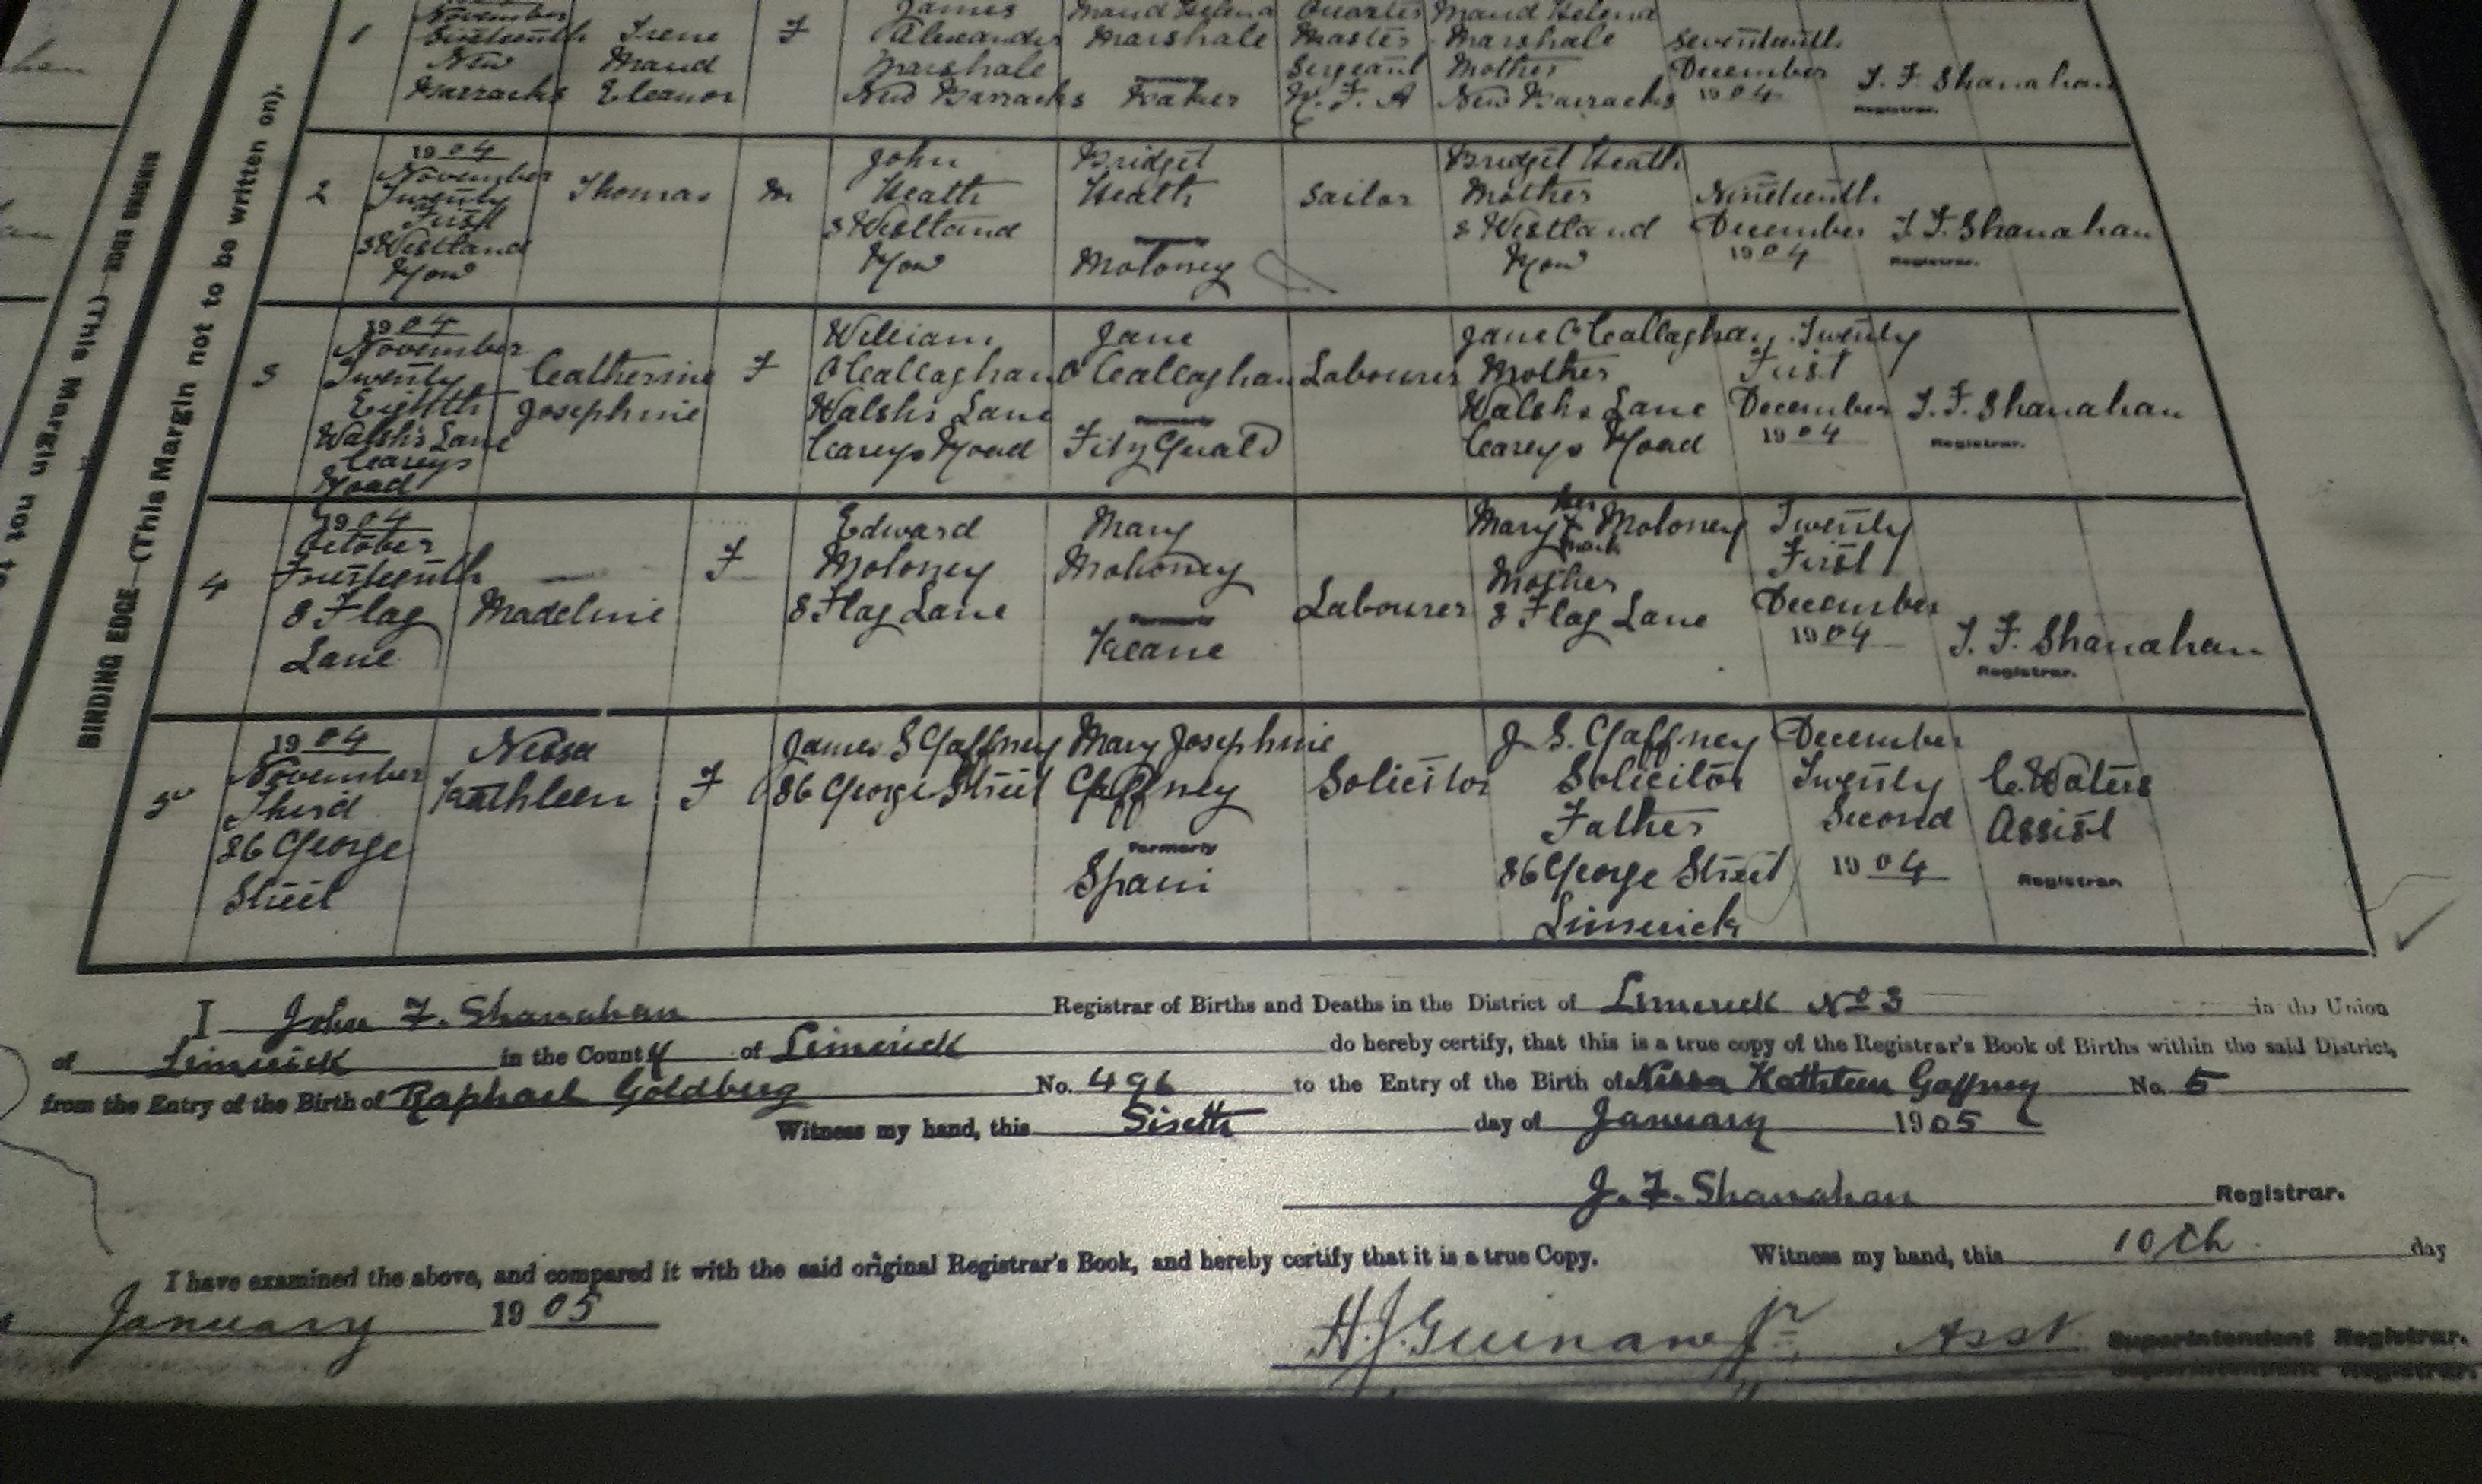 BINDING EDGE—(This Margin not to be written on).
BINDING EDGE (This Margin not to
1
November
Sixteenth
New
Barracks
Irene
Maud
Eleanor
F
James
Alexander
Marshale
New Barracks
Maud Helena
Marshale
Formerly
Quarter
Master
Sergeant
R. F. A
Maud Helena
Marshale
Mother
New Barracks
Seventeenth
December
1904
J. F. Shanahan
Registrar.
2
1904
November
Twenty
First
8 Westland
Row
Thomas
M
John
Heath
8 Westland
Row
Bridget
Heath
Formerly
Moloney
Sailor
Bridget Heath
Mother
8 Westland
Row
Nineteenth
December
1904
J. F. Shanahan
Registrar.
3
1904
November
Twenty
Eighth
Walsh's Lane
Careys
Road
Catherine
Josephine
F
William
O'Callaghan
Walsh's Lane
Careys Road
Jane
O'Callaghan
Formerly
FitzGerald
Labourer
Jane O'Callaghan
Mother
Walshs Lane
Careys Road
Twenty
First
December
1904
J. F. Shanahan
Registrar.
4
1904
October
8 Flag
Lane
—
Madeline
F
Edward
Moloney
8 Flag Lane
Mary
Moloney
Formerly
Keane
Labourer
her
Mary X Moloney
mark
Mother
8 Flag Lane
Twenty
First
December
1904
J. F. Shanahan
Registrar.
5
1904
November
Third
86 George
Street
Nessa
Kathleen
F
James S Gaffney
86 George Street
Mary Josephine
Gaffney
Formerly
Spain
Solicitor
J. S. Gaffney
Solicitor
Father
86 George Street
Limerick
December
Twenty
Second
1904
C. Waters
Assist
Registrar.
I John F. Shanahan Registrar of Births and Deaths in the District of Limerick No 3 in the Union
of Limerick in the County of Limerick do hereby certify, that this is a true copy of the Registrar's Book of Births within the said District,
from the Entry of the Birth of Raphael Goldberg No. 496 to the Entry of the Birth of Nessa Kathleen Gaffney No. 5
Witness my hand, this Sixth day of January 1905
J. F. Shanahan Registrar.
I have examined the above, and compared it with the said original Registrar's Book, and hereby certify that it is a true Copy. Witness my hand, this 10th day
January 1905
H. J. Guinane Jr. Asst. Superintendent Registrar.
Superintendent Registrar.